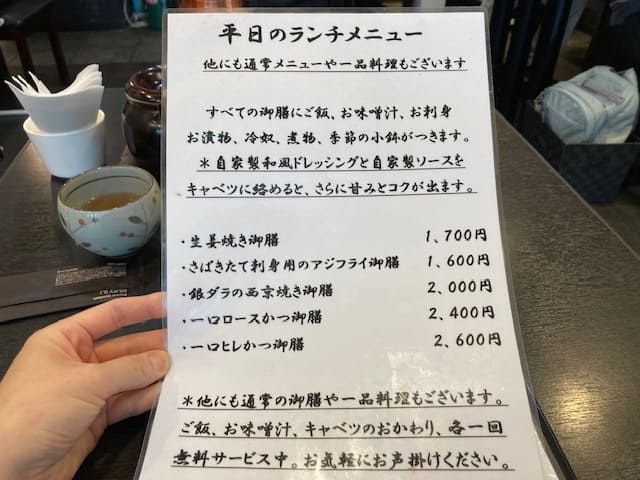 平日のランチメニュー
他にも通常メニューや一品料理もございます
すべての御膳にご飯、お味噌汁、お刺身
お漬物、冷奴、煮物、季節の小鉢がつきます。
＊自家製和風ドレッシングと自家製ソースを
キャベツに絡めると、さらに甘みとコクが出ます。
・生姜焼き御膳 1,700円
・さばきたて刺身用のアジフライ御膳 1,600円
・銀ダラの西京焼き御膳 2,000円
・一口ロースかつ御膳 2,400円
・一口ヒレかつ御膳 2,600円
＊他にも通常の御膳や一品料理もございます。
ご飯、お味噌汁、キャベツのおかわり、各一回
無料サービス中。お気軽にお声掛けください。